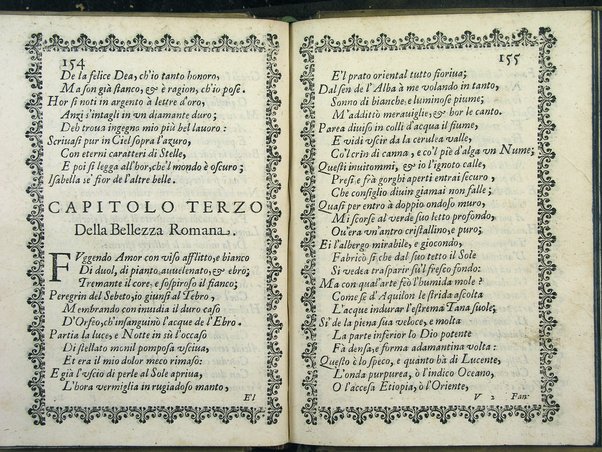 154
De la felice Dea, ch'io tanto honoro,
Ma son già stanco, & è ragion, ch'io pose.
Hor si noti in argento à lettre d'oro,
Anzi s'intagli in vn diamante duro;
Deh troua ingegno mio più bel lauoro:
Scriuasi pur in Ciel sopra l'azuro,
Con eterni caratteri di Stelle,
E poi si legga all'hor, che'l mondo è oscuro;
Isabella se' fior de l'altre belle.
CAPITOLO TERZO
Della Bellezza Romana.
FVggendo Amor con viso afflitto, e bianco
Di duol, di pianto, auuelenato, & ebro;
Tremante il core, e sospiroso il fianco;
Peregrin del Sebeto, io giunsi al Tebro,
Membrando con inuidia il duro caso
D'Orfeo, ch'insanguinò l'acque de l'Ebro.
Partia la luce, e Notte in sù l'occaso
Di stellato monil pomposa vsciua,
Et era il mio dolor meco rimaso:
E già l'vscio di perle al Sole apriua,
L'hora vermiglia in rugiadoso manto,
E'l
155
E'l prato oriental tutto fioriua;
Dal sen de l'Alba à me volando in tanto,
Sonno di bianche, e luminose piume;
M'additò merauiglie, & hor le canto.
Parea diuiso in colli d'acqua il fiume,
E vidi vscir da la cerulea valle,
Co'l crin di canna, e co'l piè d'alga vn Nume;
Questi inuitommi, & io l'ignoto calle,
Presi, e frà gorghi aperti entrai securo,
Che consiglio diuin giamai non falle;
Quasi per entro à doppio ondoso muro,
Mi scorse al verde suo letto profondo,
Ou'era vn'antro cristallino, e puro;
Ei l'albergo mirabile, e giocondo,
Fabricò sì che dal suo tetto il Sole
Si vedea trasparir sù'l fresco fondo:
Ma con qual'arte feo l'humida mole?
Come se d'Aquilon le strida ascolta
L'acque indurar l'estrema Tana suole;
Sì de la piena sua veloce, e molta
La parte inferior lo Dio potente
Fà densa, e forma adamantina volta:
Questo è lo speco, e quanto hà di Lucente,
L'onda purpurea, ò l'indico Oceano,
O l'accesa Etiopia, ò l'Oriente,
V 2 Fan-